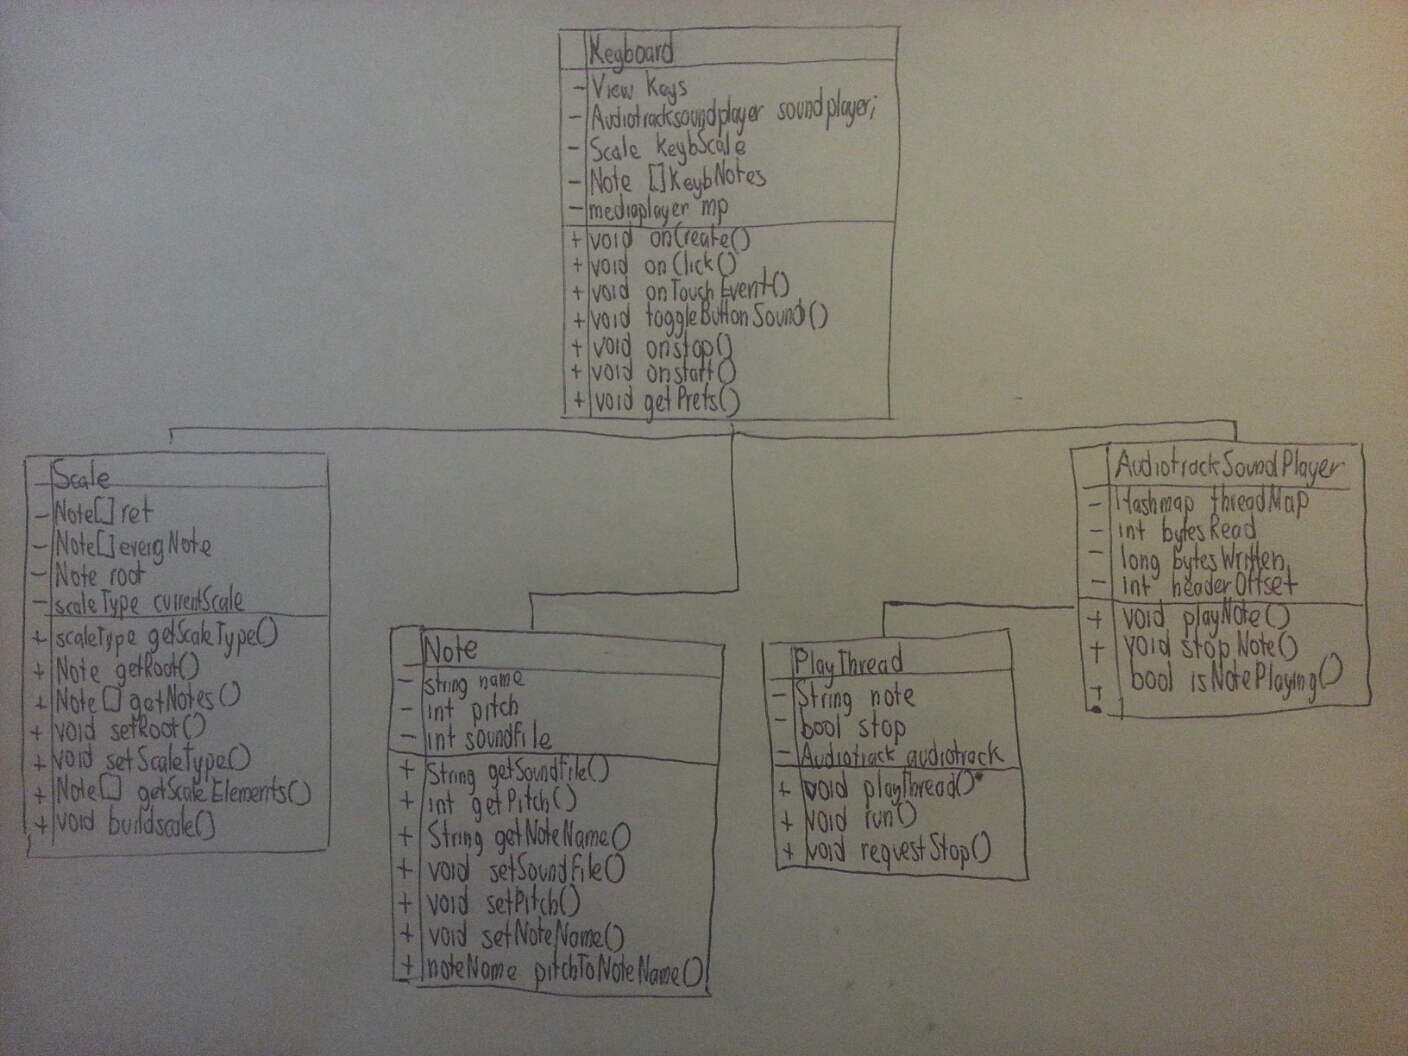 Keyboard
- View Keys
- Audiotracksoundplayer soundplayer;
- Scale keybScale
- Note []KeybNotes
- mediaplayer mp
+ void onCreate()
+ void onClick()
+ void onTouchEvent()
+ void toggleButtonSound()
+ void onstop()
+ void onstart()
+ void getPrefs()
Scale
- Note[] ret
- Note[] everyNote
- Note root
- scaleType currentScale
+ scaleType getScaleType()
+ Note getRoot()
+ Note[] getNotes()
+ void setRoot()
+ void setScaleType()
+ Note[] getScaleElements()
+ void buildscale()
Note
- string name
- int pitch
- int soundfile
+ String getSoundFile()
+ int getPitch()
+ String getNoteName()
+ void setSoundFile()
+ void setPitch()
+ void setNoteName()
+ noteName pitchToNoteName()
PlayThread
- String note
- bool stop
- Audiotrack audiotrack
+ void playThread()
+ void run()
+ void requestStop()
AudiotrackSoundPlayer
- Hashmap threadMap
- int bytesRead
- long bytesWritten
- int headerOffset
+ void playNote()
+ void stopNote()
+ bool isNotePlaying()